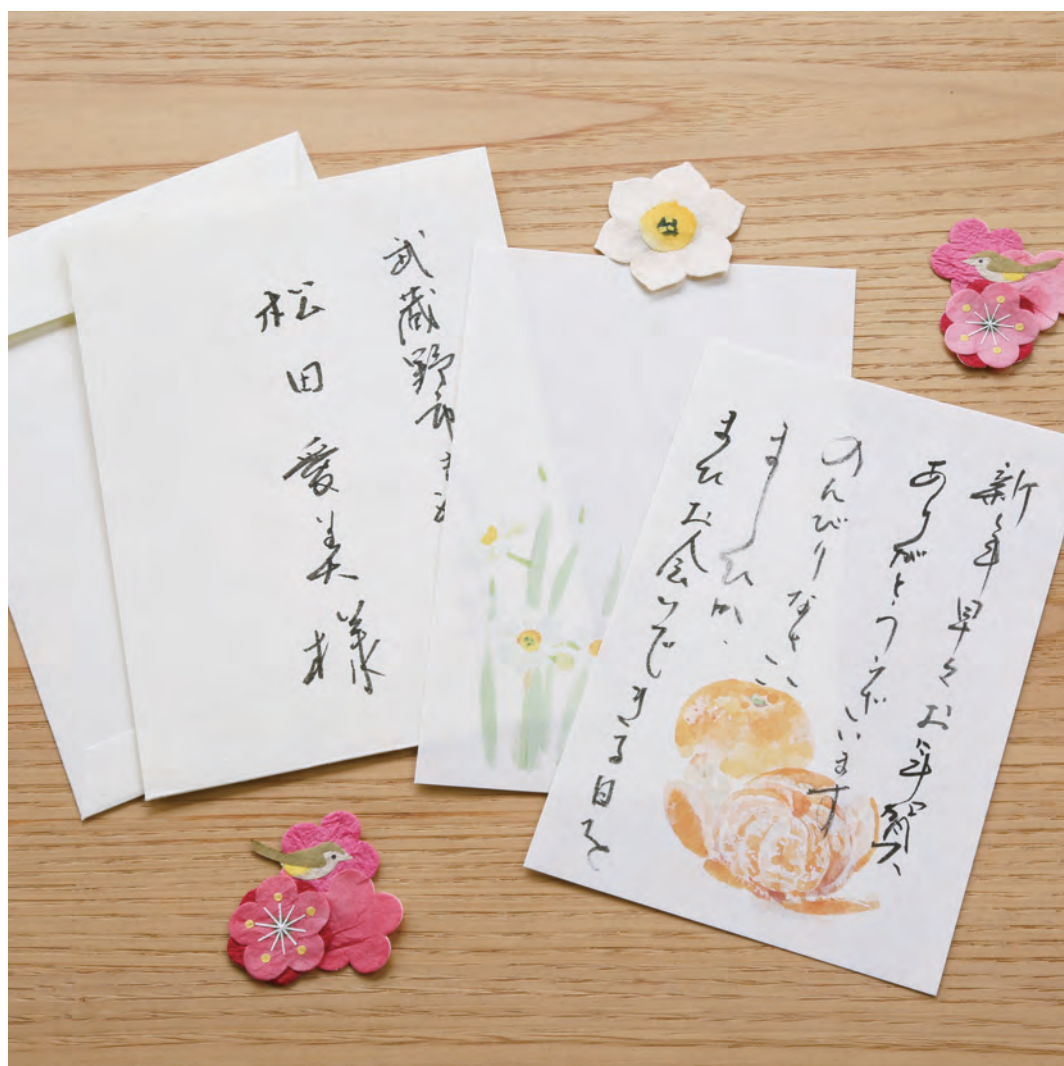 武蔵野市
松田愛美様
新年早々お年賀、
ありがとうございます
のんびりなさい
ましたか、
またお会いできる日を